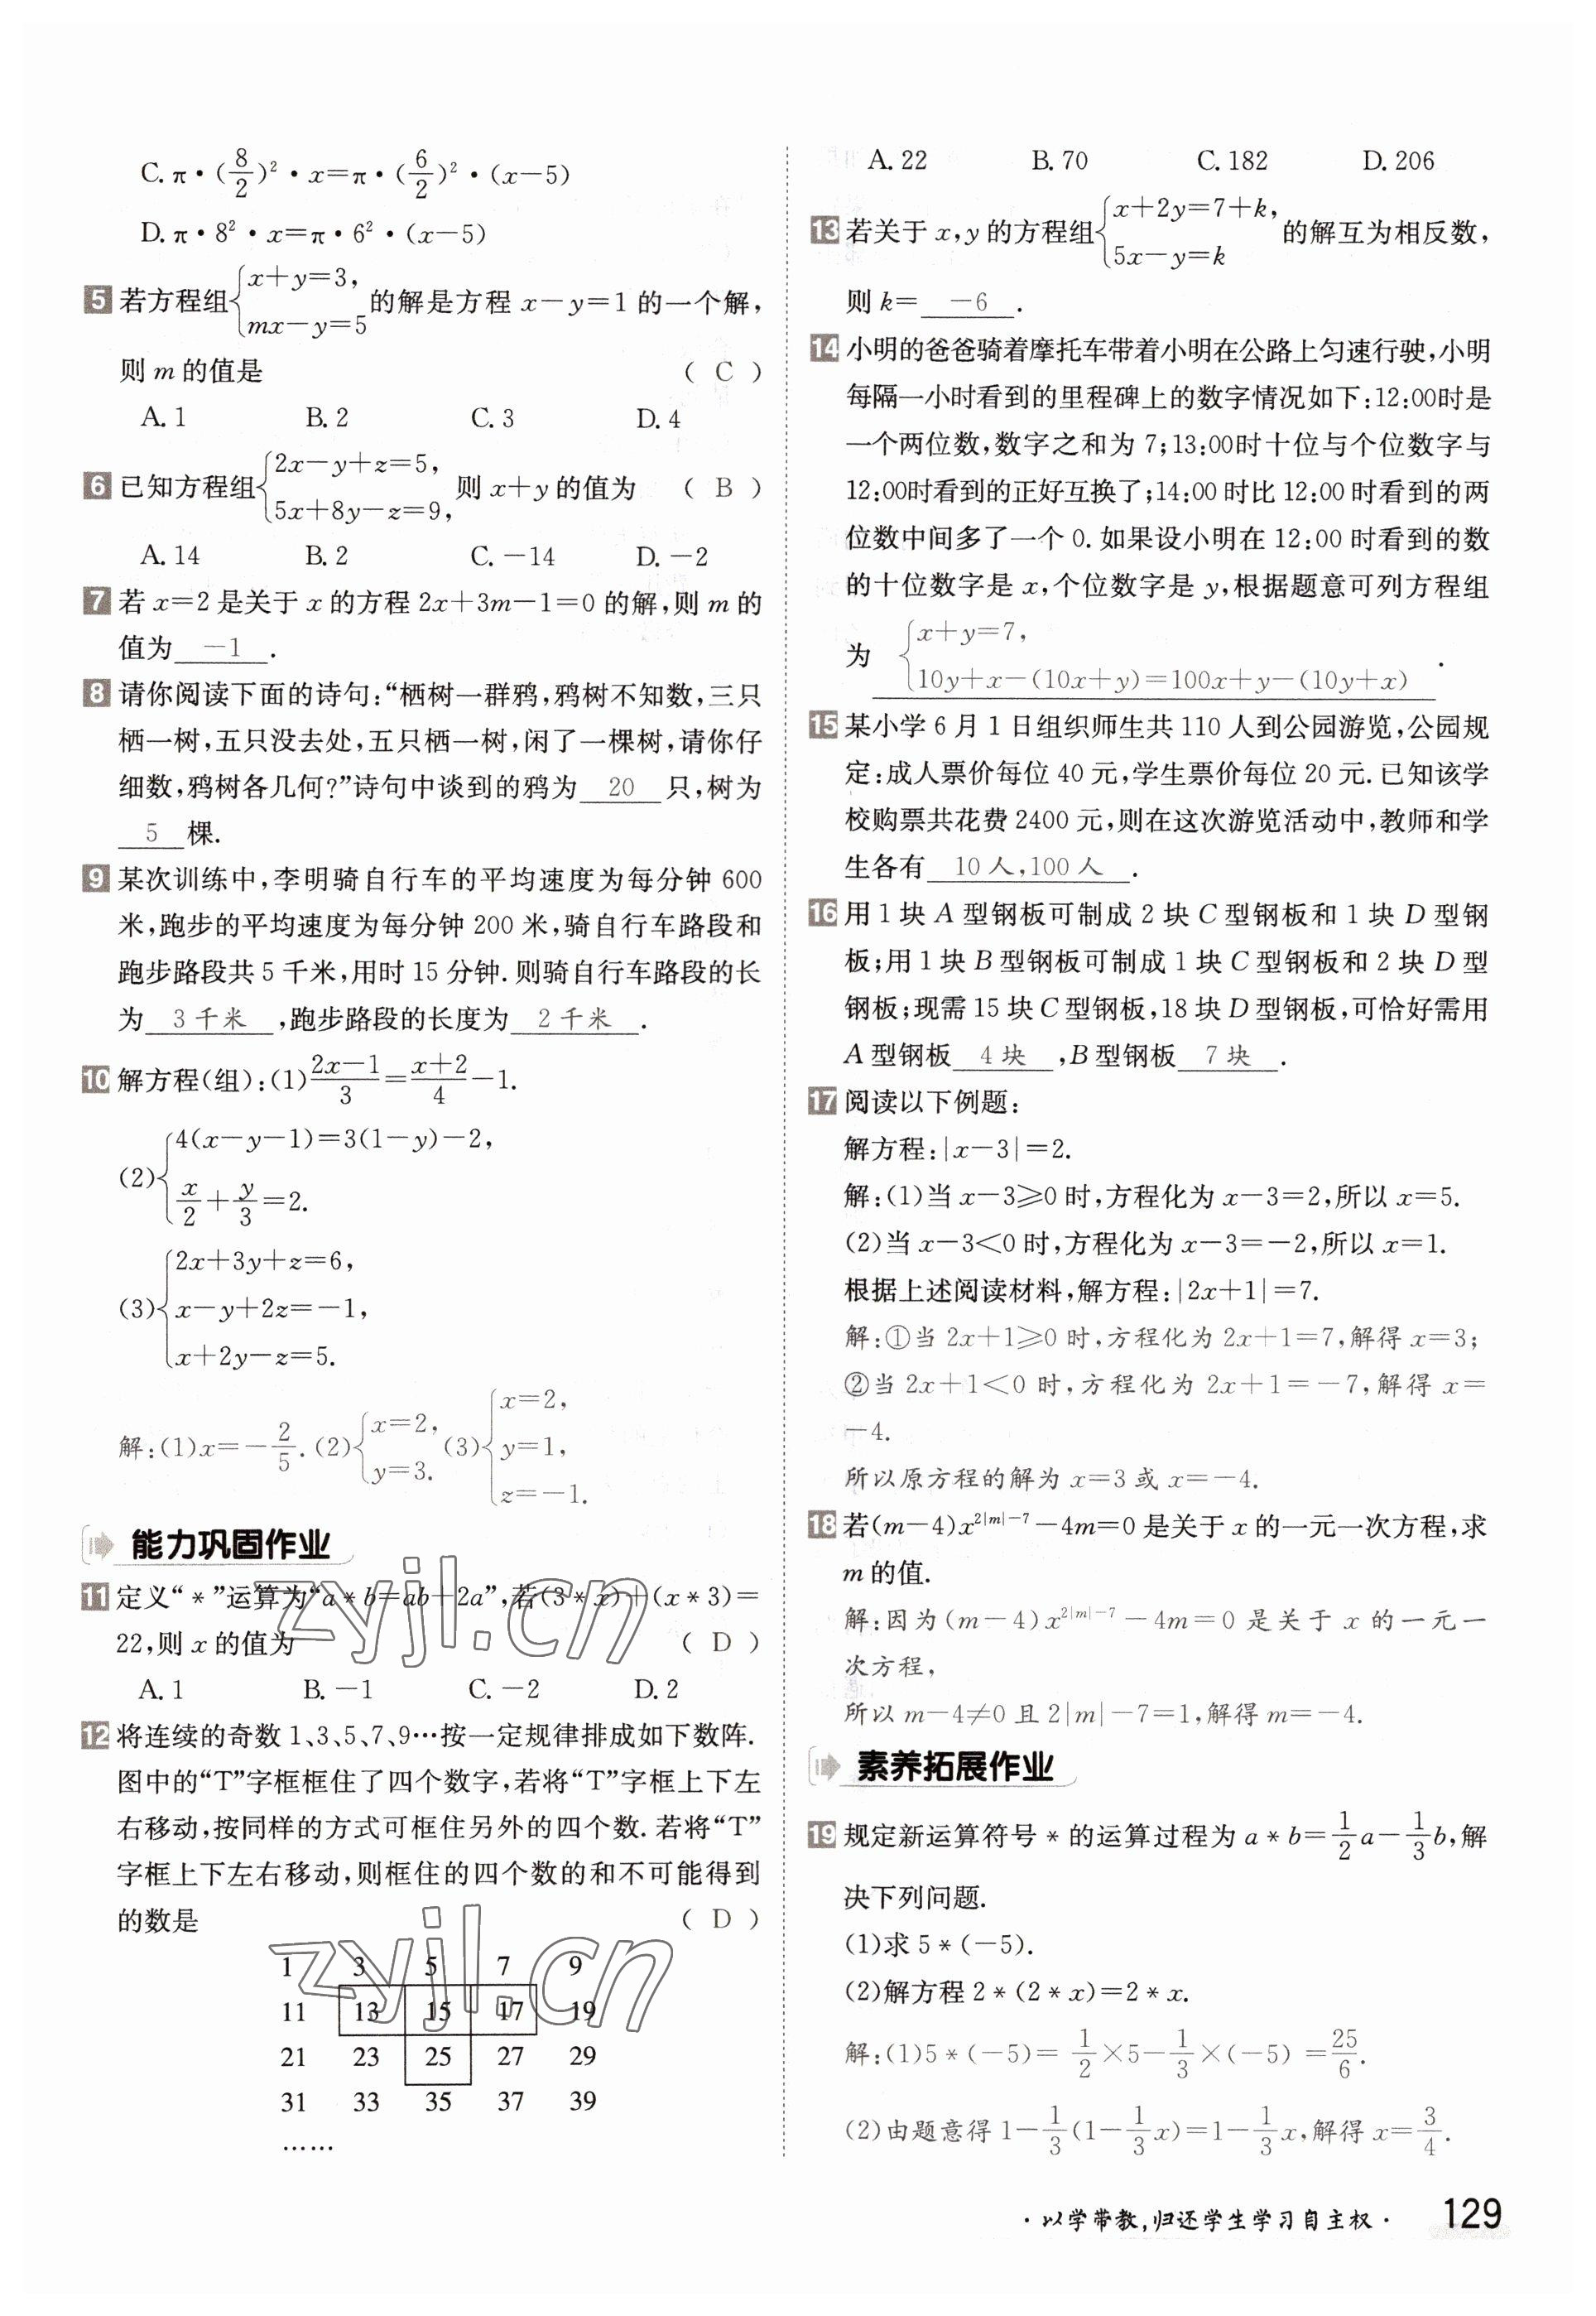 C. π·(8/2)²·x=π·(6/2)²·(x-5)
D. π·8²·x=π·6²·(x-5)
5 若方程组{x+y=3, mx-y=5 的解是方程 x-y=1 的一个解,
则 m 的值是 ( C )
A. 1 B. 2 C. 3 D. 4
6 已知方程组{2x-y+z=5, 5x+8y-z=9, 则 x+y 的值为 ( B )
A. 14 B. 2 C. -14 D. -2
7 若 x=2 是关于 x 的方程 2x+3m-1=0 的解,则 m 的
值为 -1 .
8 请你阅读下面的诗句:“栖树一群鸦,鸦树不知数,三只
栖一树,五只没去处,五只栖一树,闲了一棵树,请你仔
细数,鸦树各几何?”诗句中谈到的鸦为 20 只,树为
5 棵.
9 某次训练中,李明骑自行车的平均速度为每分钟 600
米,跑步的平均速度为每分钟 200 米,骑自行车路段和
跑步路段共 5 千米,用时 15 分钟. 则骑自行车路段的长
为 3 千米 ,跑步路段的长度为 2 千米 .
10 解方程(组):(1) (2x-1)/3=(x+2)/4-1.
(2){4(x-y-1)=3(1-y)-2,
x/2+y/3=2.
(3){2x+3y+z=6,
x-y+2z=-1,
x+2y-z=5.
解:(1)x=-2/5. (2){x=2, y=3. (3){x=2, y=1, z=-1.
能力巩固作业
11 定义“*”运算为“a*b=ab+2a”,若(3*x)+(x*3)=
22,则 x 的值为 ( D )
A. 1 B. -1 C. -2 D. 2
12 将连续的奇数 1、3、5、7、9…按一定规律排成如下数阵.
图中的“T”字框框住了四个数字,若将“T”字框上下左
右移动,按同样的方式可框住另外的四个数. 若将“T”
字框上下左右移动,则框住的四个数的和不可能得到
的数是 ( D )
1 3 5 7 9
11 13 15 17 19
21 23 25 27 29
31 33 35 37 39
……
A. 22 B. 70 C. 182 D. 206
13 若关于 x,y 的方程组{x+2y=7+k, 5x-y=k 的解互为相反数,
则 k= -6 .
14 小明的爸爸骑着摩托车带着小明在公路上匀速行驶,小明
每隔一小时看到的里程碑上的数字情况如下:12:00时是
一个两位数,数字之和为 7;13:00时十位与个位数字与
12:00时看到的正好互换了;14:00 时比 12:00 时看到的两
位数中间多了一个 0. 如果设小明在 12:00 时看到的数
的十位数字是 x,个位数字是 y,根据题意可列方程组
为 {x+y=7, 10y+x-(10x+y)=100x+y-(10y+x) .
15 某小学 6 月 1 日组织师生共 110 人到公园游览,公园规
定:成人票价每位 40 元,学生票价每位 20 元. 已知该学
校购票共花费 2400 元,则在这次游览活动中,教师和学
生各有 10 人,100 人 .
16 用 1 块 A 型钢板可制成 2 块 C 型钢板和 1 块 D 型钢
板;用 1 块 B 型钢板可制成 1 块 C 型钢板和 2 块 D 型
钢板;现需 15 块 C 型钢板,18 块 D 型钢板,可恰好需用
A 型钢板 4 块 ,B 型钢板 7 块 .
17 阅读以下例题:
解方程:|x-3|=2.
解:(1)当 x-3≥0 时,方程化为 x-3=2,所以 x=5.
(2)当 x-3<0 时,方程化为 x-3=-2,所以 x=1.
根据上述阅读材料,解方程:|2x+1|=7.
解:①当 2x+1≥0 时,方程化为 2x+1=7,解得 x=3;
②当 2x+1<0 时,方程化为 2x+1=-7,解得 x=
-4.
所以原方程的解为 x=3 或 x=-4.
18 若(m-4)x^(2|m|-7)-4m=0 是关于 x 的一元一次方程,求
m 的值.
解:因为(m-4)x^(2|m|-7)-4m=0 是关于 x 的一元一
次方程,
所以 m-4≠0 且 2|m|-7=1,解得 m=-4.
素养拓展作业
19 规定新运算符号 * 的运算过程为 a*b=1/2a-1/3b,解
决下列问题.
(1)求 5*(-5).
(2)解方程 2*(2*x)=2*x.
解:(1)5*(-5)= 1/2×5-1/3×(-5) =25/6.
(2)由题意得 1-1/3(1-1/3x)=1-1/3x,解得 x=3/4.
·以学带教,归还学生学习自主权· 129
zyjl.cn
zyjl.cn